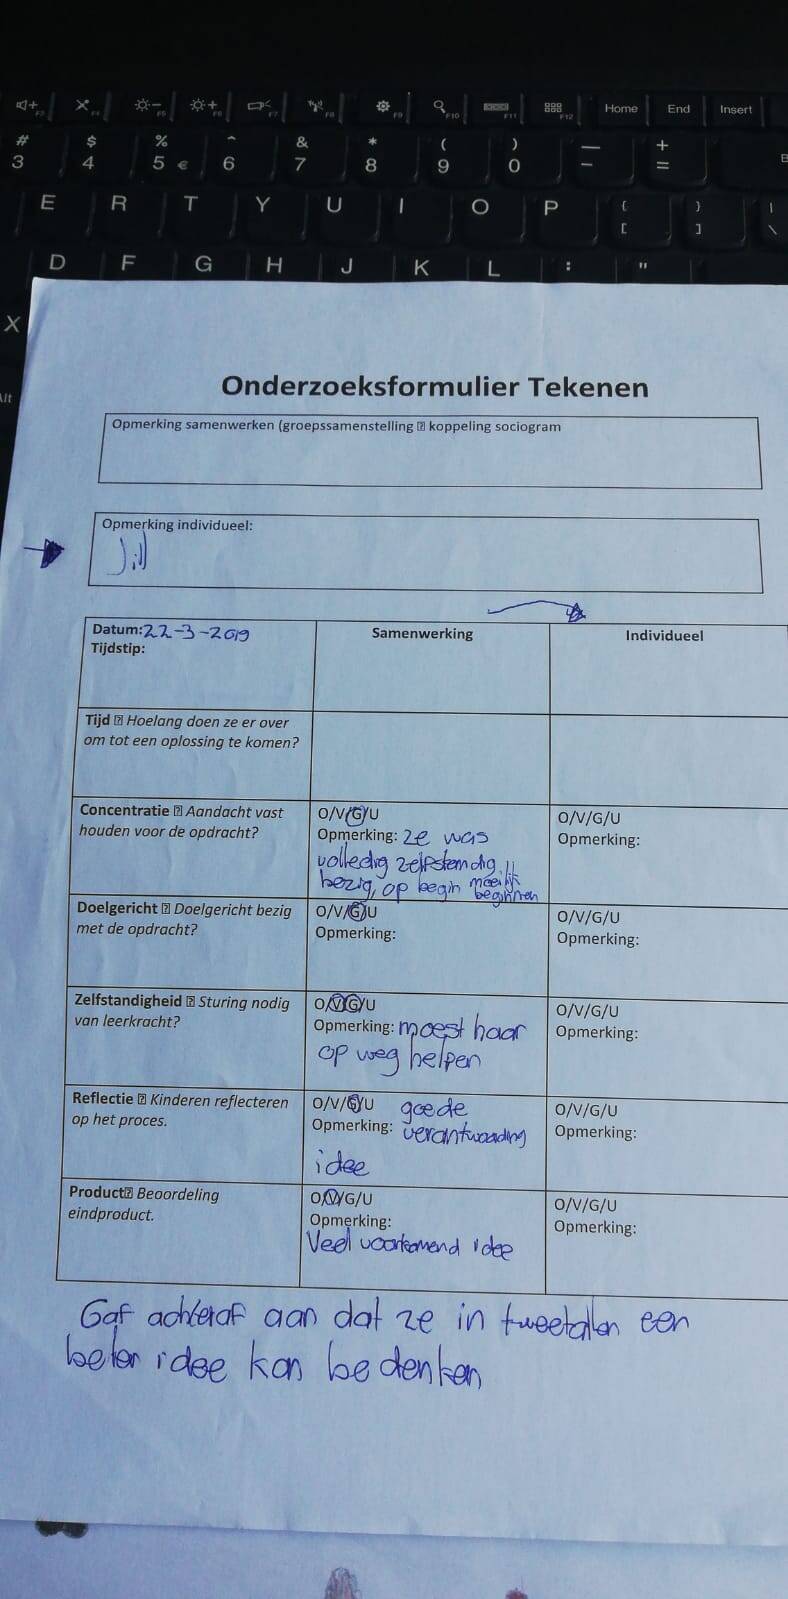 F5 F6 F7 F8 F9 F10 F11 F12 Home End Insert
# $ % ^ & * ( ) — +
3 4 5 € 6 7 8 9 0 - =
E R T Y U I O P { [ } ] | \
D F G H J K L : "
X
Alt
Onderzoeksformulier Tekenen
Opmerking samenwerken (groepssamenstelling ⍰ koppeling sociogram
Opmerking individueel:
Jill
Datum:22-3-2019 Samenwerking Individueel
Tijdstip:
Tijd ⍰ Hoelang doen ze er over
om tot een oplossing te komen?
Concentratie ⍰ Aandacht vast
houden voor de opdracht?
O/V/G/U
Opmerking: ze was
volledig zelfstandig
bezig, op begin moeilijk
beginnen
O/V/G/U
Opmerking:
Doelgericht ⍰ Doelgericht bezig
met de opdracht?
O/V/G/U
Opmerking:
O/V/G/U
Opmerking:
Zelfstandigheid ⍰ Sturing nodig
van leerkracht?
O/V/G/U
Opmerking: moest haar
op weg helpen
O/V/G/U
Opmerking:
Reflectie ⍰ Kinderen reflecteren
op het proces.
O/V/G/U goede
Opmerking: verantwoording
idee
O/V/G/U
Opmerking:
Product⍰ Beoordeling
eindproduct.
O/V/G/U
Opmerking:
Veel voorkomend idee
O/V/G/U
Opmerking:
Gaf achteraf aan dat ze in tweetallen een
beter idee kon bedenken